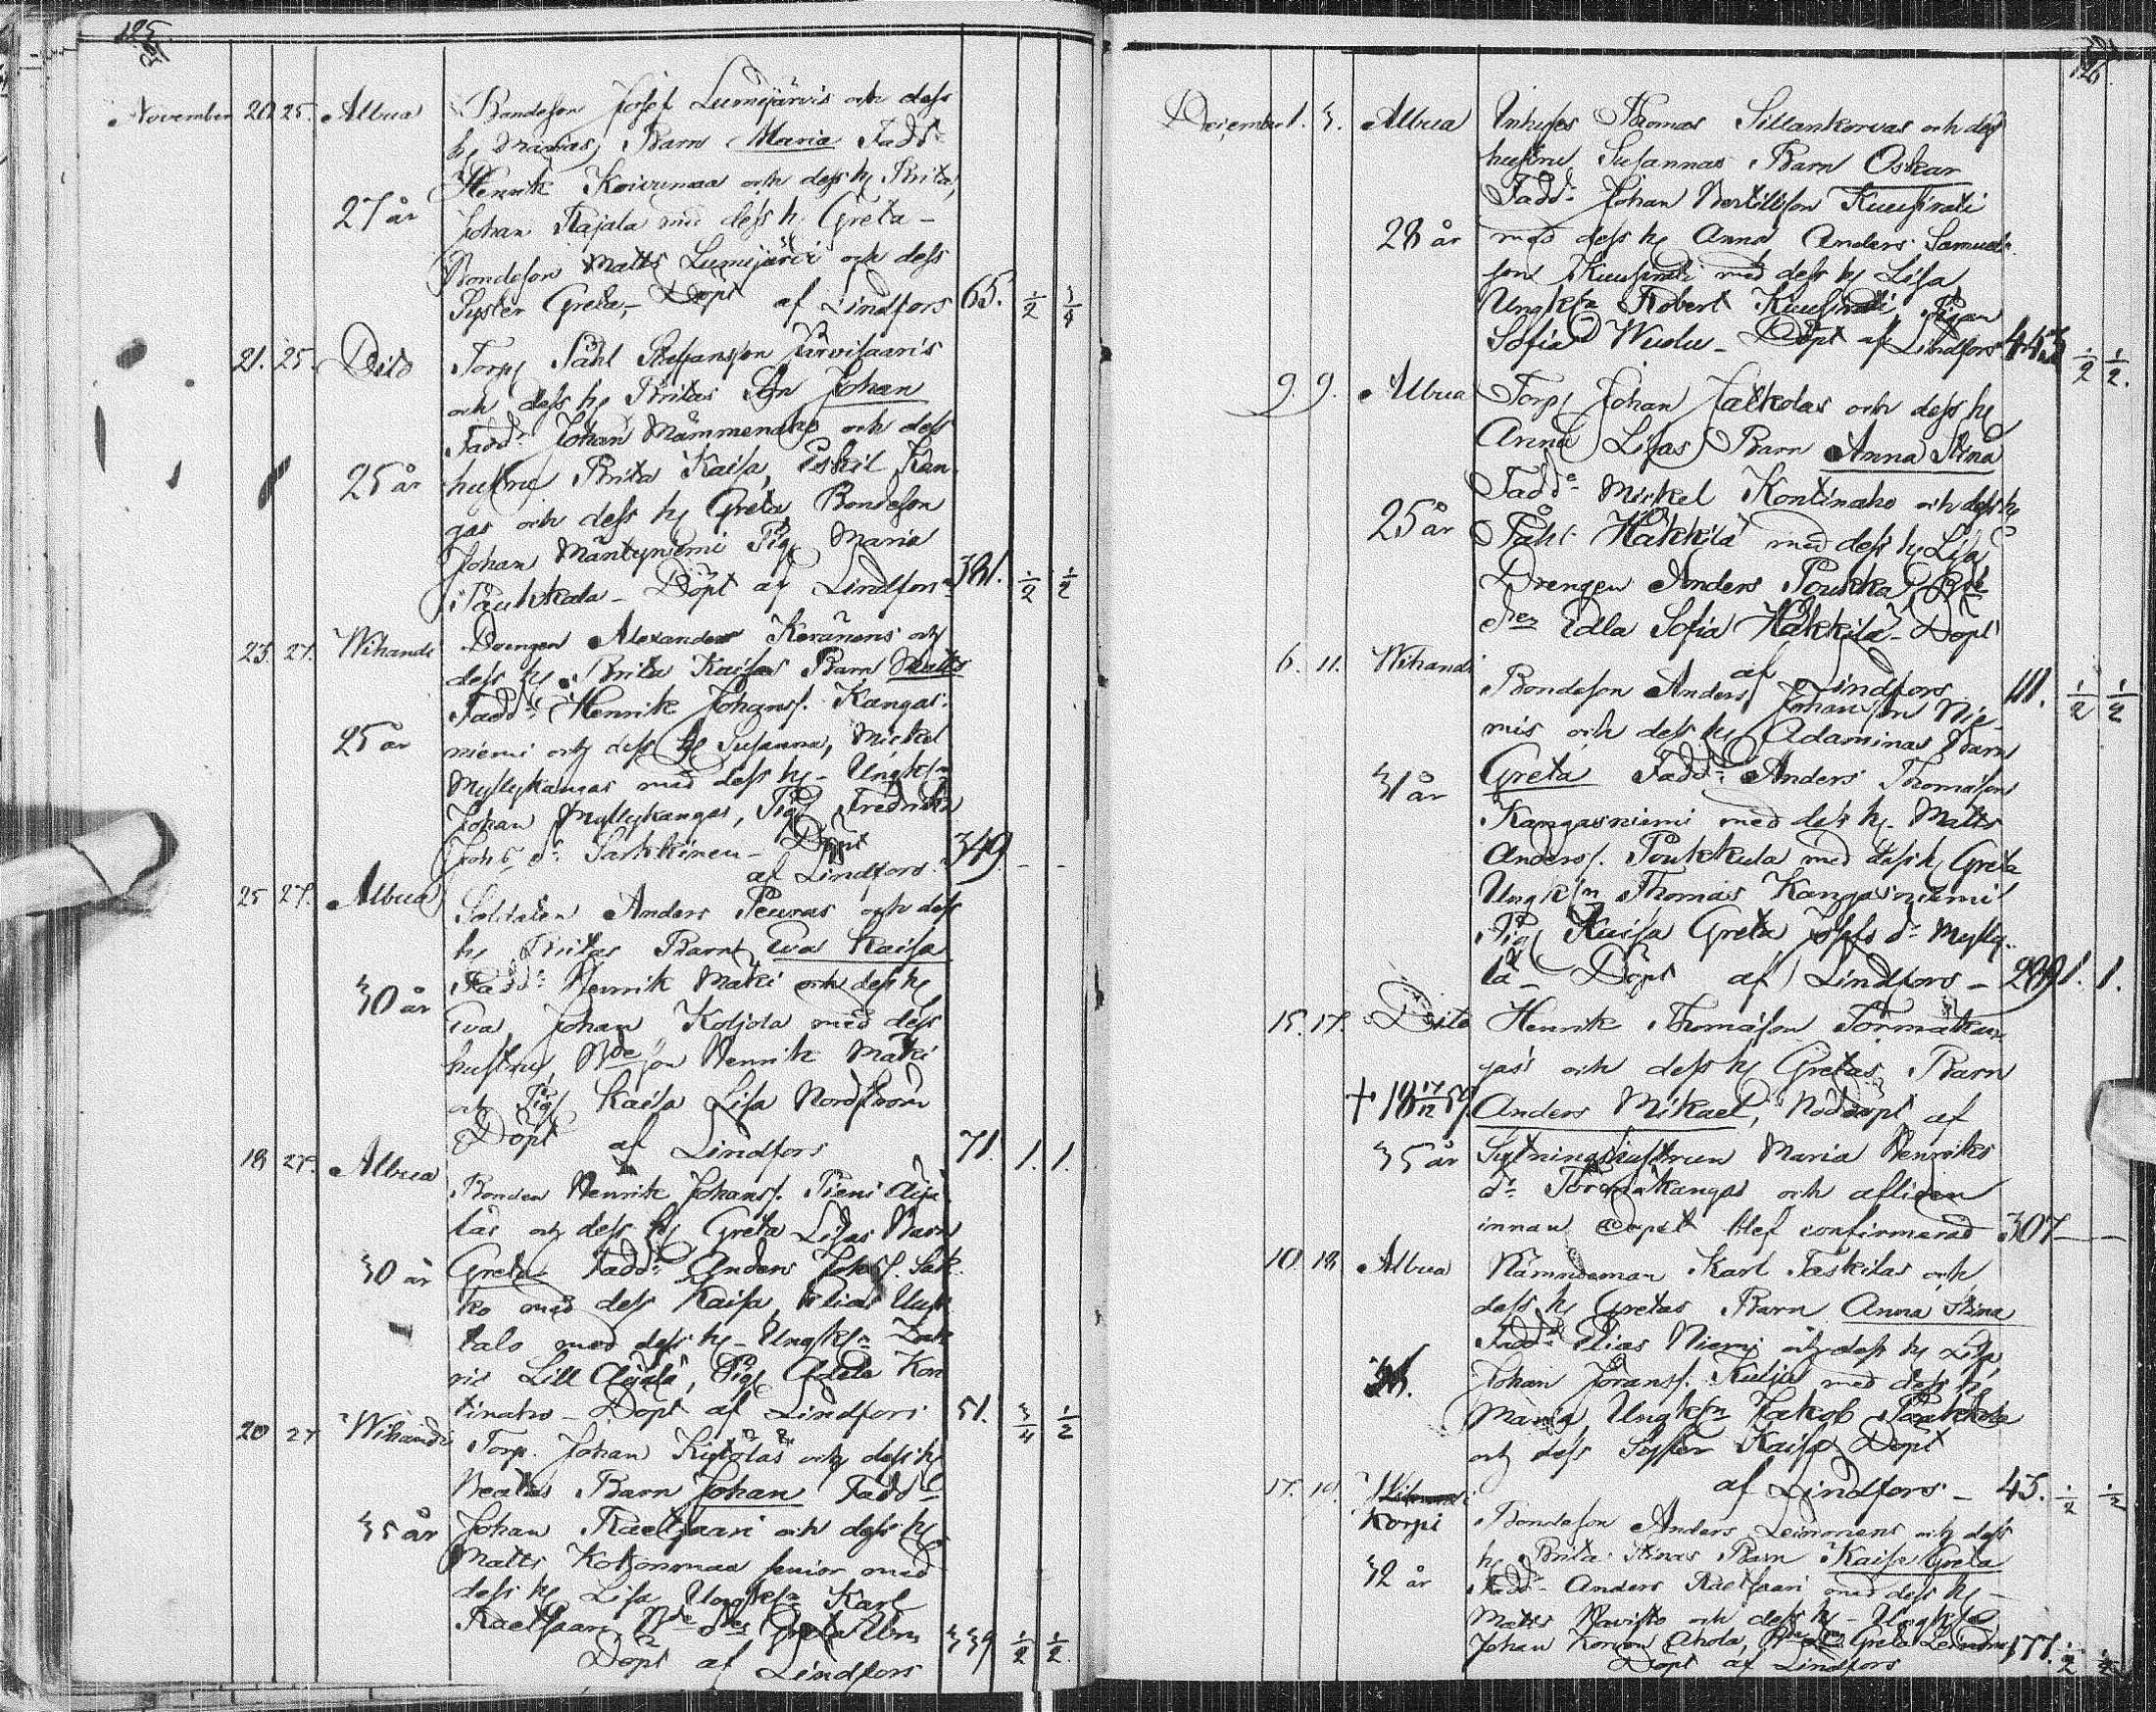 125
November 20. 25. Albua Bondeson Josef Lumijärvis och dess
h, Barn Maria Fadd:
Henrik Koivumaa och dess h. Brita,
27 år Johan Rajala med dess h. Greta –
Bondeson Matts Lumijärvi och dess
Syster Greta, – Döpt af Lindfors 65. 1/2 3/4
21. 25. Dito Torp. Påhl Staffansson Järvisaari's
och dess h. Britas Son Johan
Fadd: Johan Mämmenaho och dess
25 år hustru Brita Kaisa, Eskil Kan-
gas och dess h. Greta, Bondeson
Johan Mäntyniemi Pig. Maria
Paukkala – Döpt af Lindfors 381. 1/2 1/2
23. 27. Wihandi Drengen Alexander Keränens och
dess h. Brita Kaisas Barn Matts
Fadd: Henrik Johanss. Kangas-
25 år niemi och dess h. Susanna, Mickel
Myllykangas med dess h. – Ungk:n
Johan Myllykangas, Pig. Fredrika
Johs d: Sarkkinen – Döpt
af Lindfors. 349. – –
25 27. Albua Soldaten Anders Peuras och dess
h. Britas Barn Eva Kaisa
Fadd: Henrik Mäki och dess h.
30 år Eva, Johan Koljola med dess
hustru, Bde son Henrik Mäki
och Pig. Kaisa Lisa Nordström
Döpt af Lindfors 71. 1. 1.
18 27. Albua Bonden Henrik Johanss. Pieni Äijä-
läs och dess h. Greta Lisas Barn
30 år Greta Fadd: Anders Johss. Sak-
ko med dess Kaisa, Elias Uusi-
talo med dess h. – Ungk:n
Lill Äijälä, Pig. Adela Kon-
tinaho – Döpt af Lindfors 51. 3/4 1/2
20 27 Wihandi Torp. Johan Kiytöläs och dess h.
Beatas Barn Johan Fadd:
35 år Johan Raetsaari och dess h.
Matts Kotzonmaa senior med
dess h. Lisa Ungk:n Karl
Raetsaari, Bde Greta
Döpt af Lindfors 339 1/2 1/2.
126
December 1. 3. Albua Inhyses Thomas Sillankorvas och dess
hustru Susannas Barn Oskar
Fadd: Johan Bertillsson Kuusirati
28 år med dess h. Anna Anders Samuels-
son Kuusirati med dess h. Lisa
Ungk:n Robert Kuusirati, Pigan
Sofia Wuolu – Döpt af Lindfors 1/2 1/2.
9. 9. Albua Torp. Johan Jälkolas och dess h.
Anna Lisas Barn Anna Stina
Fadd: Mickel Kontinaho och dess h.
25 år Påhl Häkkilä med dess h. Lisa
Drengen Anders Poukka, Bde
Edla Sofia Häkkilä – Döpt
af Lindfors 111. 1/2 1/2
6. 11. Wihandi Bondeson Anders Johansson Nie-
mis och dess h. Adaminas Barn
31 år Greta Fadd: Anders Thomasson
Kangasniemi med dess h. Matts
Anderss. Poukkula med dess h. Greta
Ungk:n Thomas Kangasniemi
Pig. Kaisa Greta d: Mylly-
lä – Döpt af Lindfors – 289 1. 1.
15. 17. Dito Henrik Thomasson Törmäkan-
gas' och dess h. Gretas Barn
+ 18 17/12 59 Anders Mikael, Nöddöpt af
35 år Sytningshustrun Maria Henriks
d: Törmäkangas och afliden
innan dopet blef confirmerad 307 – –
10 18 Albua Nämndeman Karl Taskilas och
dess h. Gretas Barn Anna Stina
Fadd: Elias Niemi och dess h. Lisa,
Johan Göranss. Kulju med dess h.
Maria, Ungk:n Jakob Paakkola
och dess Syster Kaisa, Döpt
af Lindfors – 45. 1/2 1/2
17. 19. Wihandi
Korpi Bondeson Anders Leinonens och dess
h. Brita Stinas Barn Kaisa Greta
32 år Fadd: Anders Raetsaari med dess h. –
Matts Navisto och dess h. – Ungk:n
Johan Korvon Ahola, Greta Leinonen 177. 1/2 1/2
Döpt af Lindfors